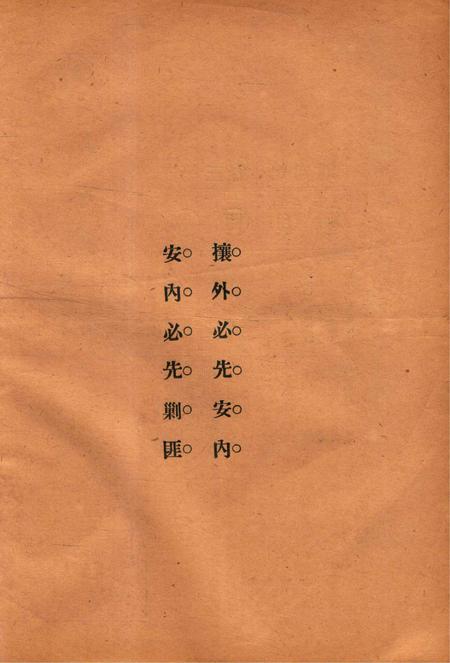 攘外必先安內
安內必先剿匪